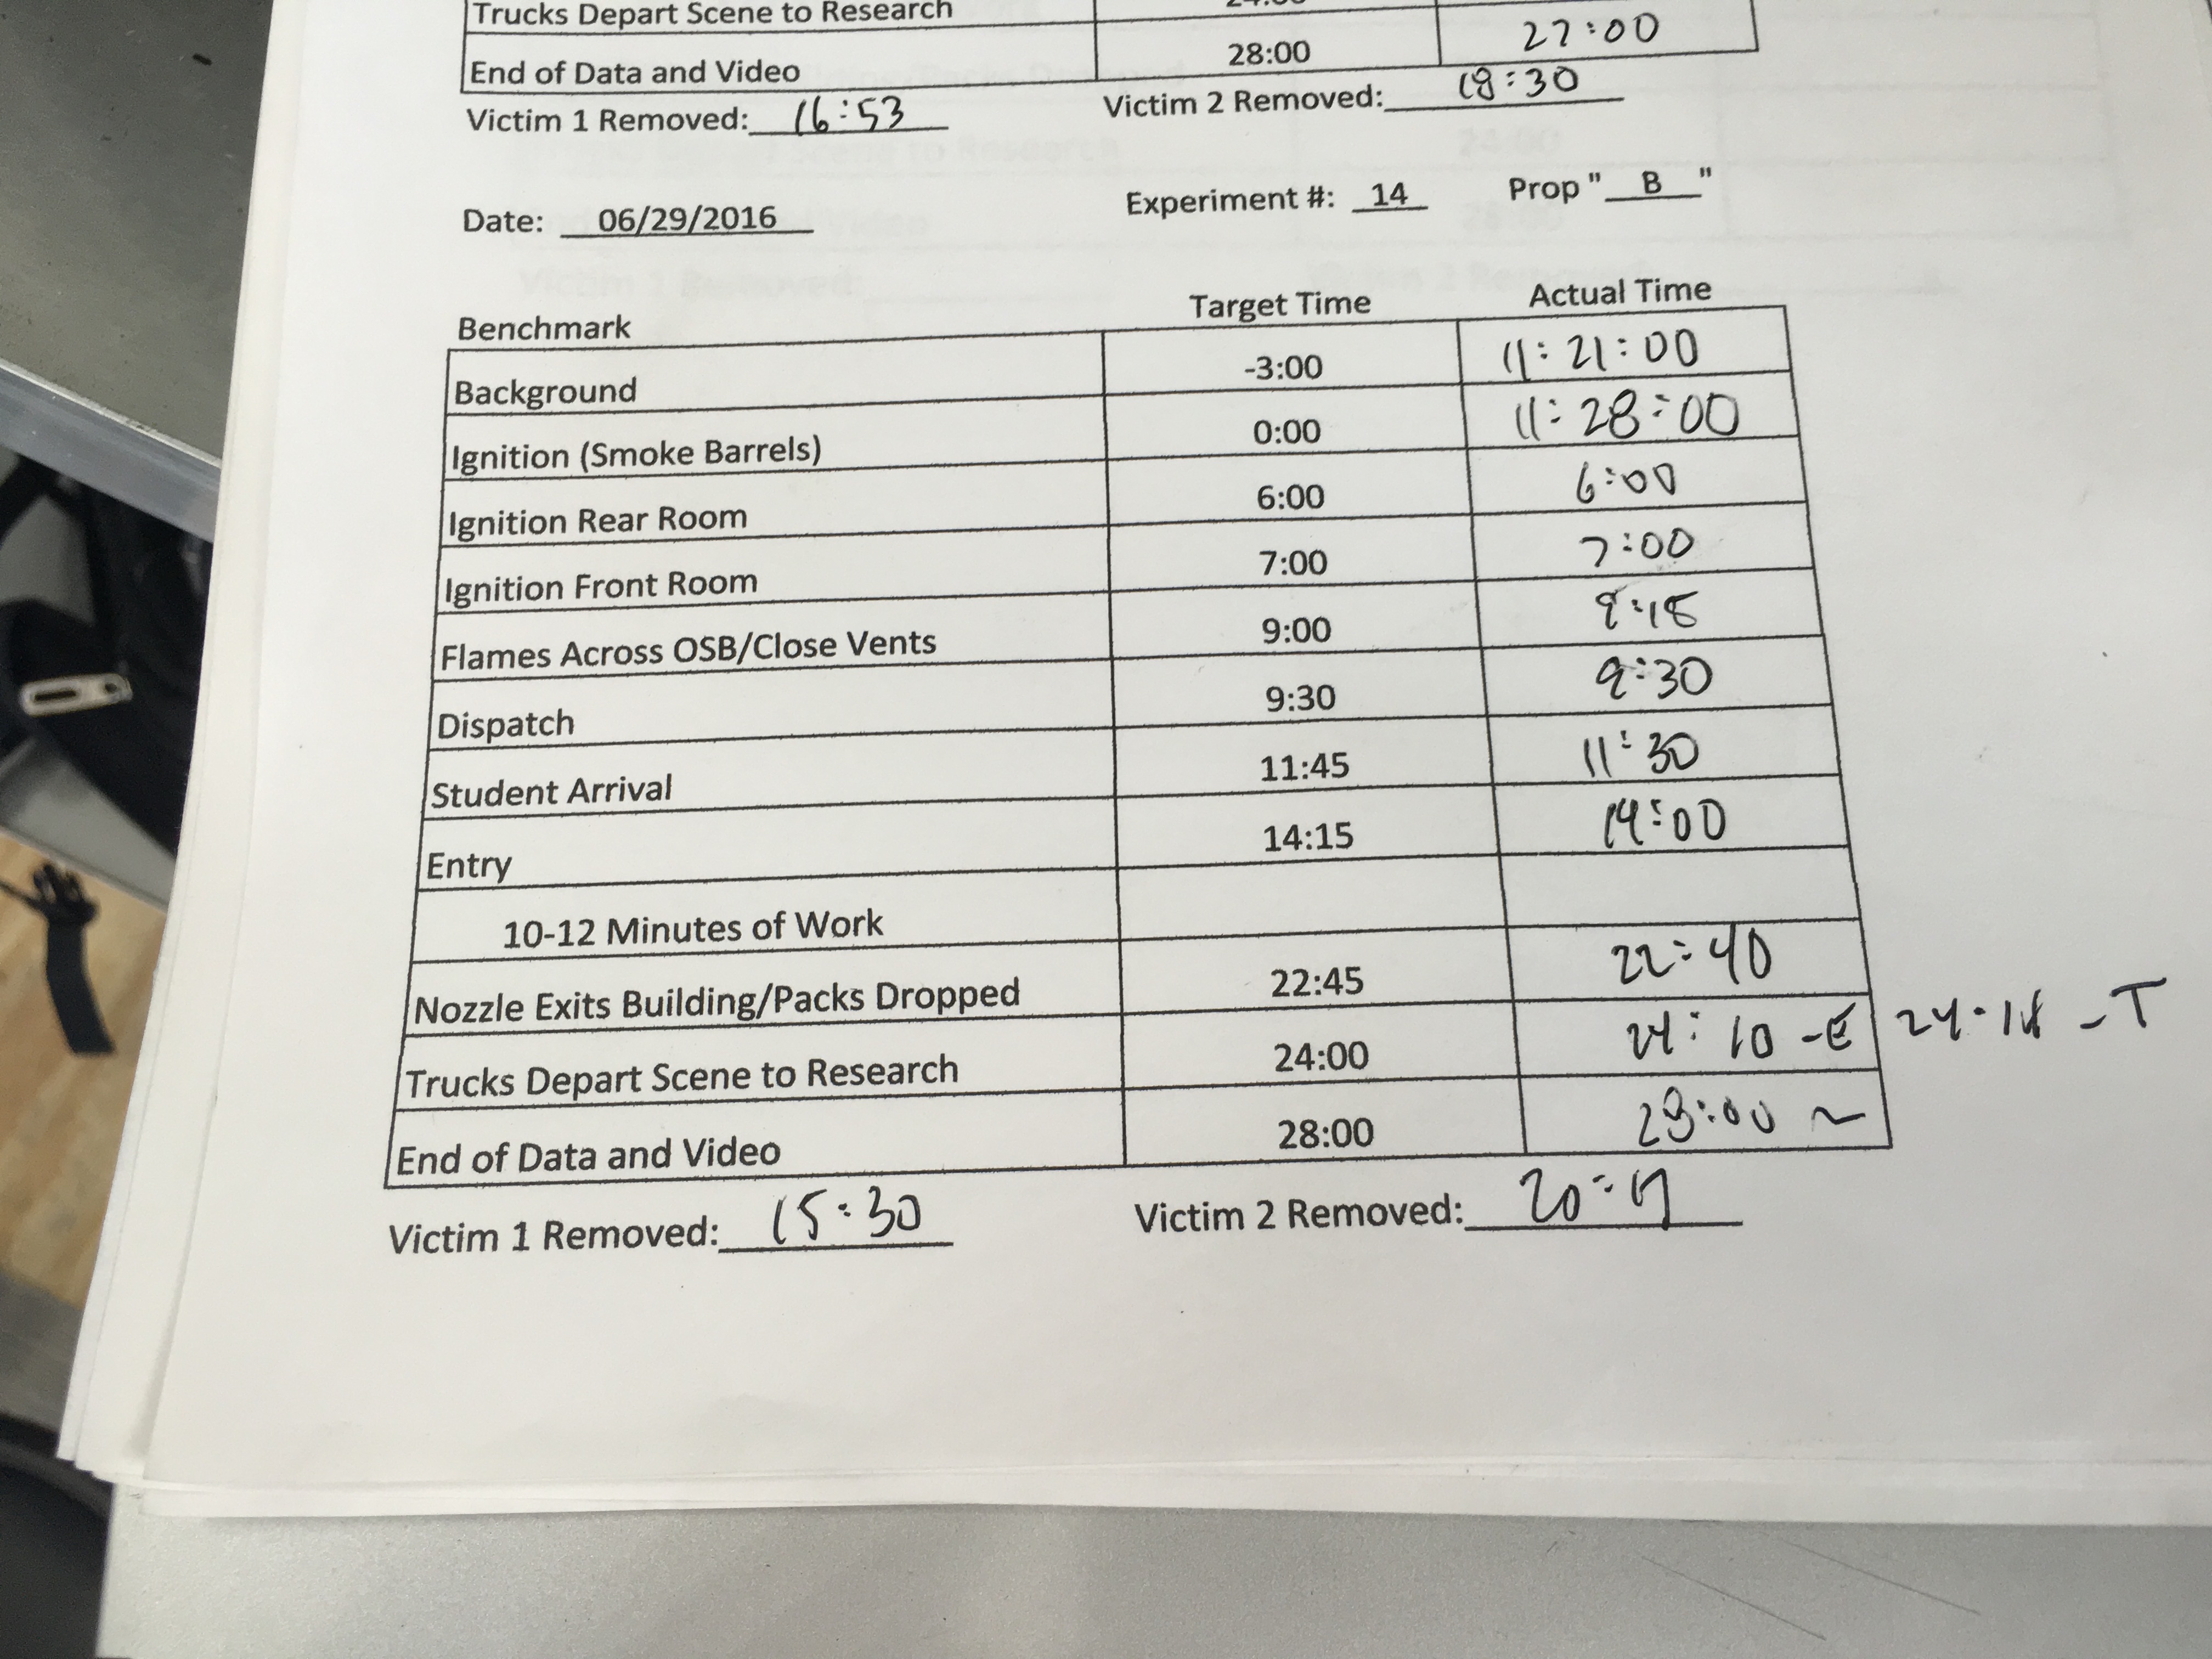 Trucks Depart Scene to Research
End of Data and Video 28:00 27:00
Victim 1 Removed: 16:53 Victim 2 Removed: 18:30
Date: 06/29/2016 Experiment #: 14 Prop " B "
Benchmark Target Time Actual Time
Background -3:00 11:21:00
Ignition (Smoke Barrels) 0:00 11:28:00
Ignition Rear Room 6:00 6:00
Ignition Front Room 7:00 7:00
Flames Across OSB/Close Vents 9:00
Dispatch 9:30 9:30
Student Arrival 11:45 11:30
Entry 14:15 14:00
10-12 Minutes of Work
Nozzle Exits Building/Packs Dropped 22:45 22:40
Trucks Depart Scene to Research 24:00 24:10 -E -T
End of Data and Video 28:00 28:00 ~
Victim 1 Removed: 15:30 Victim 2 Removed: